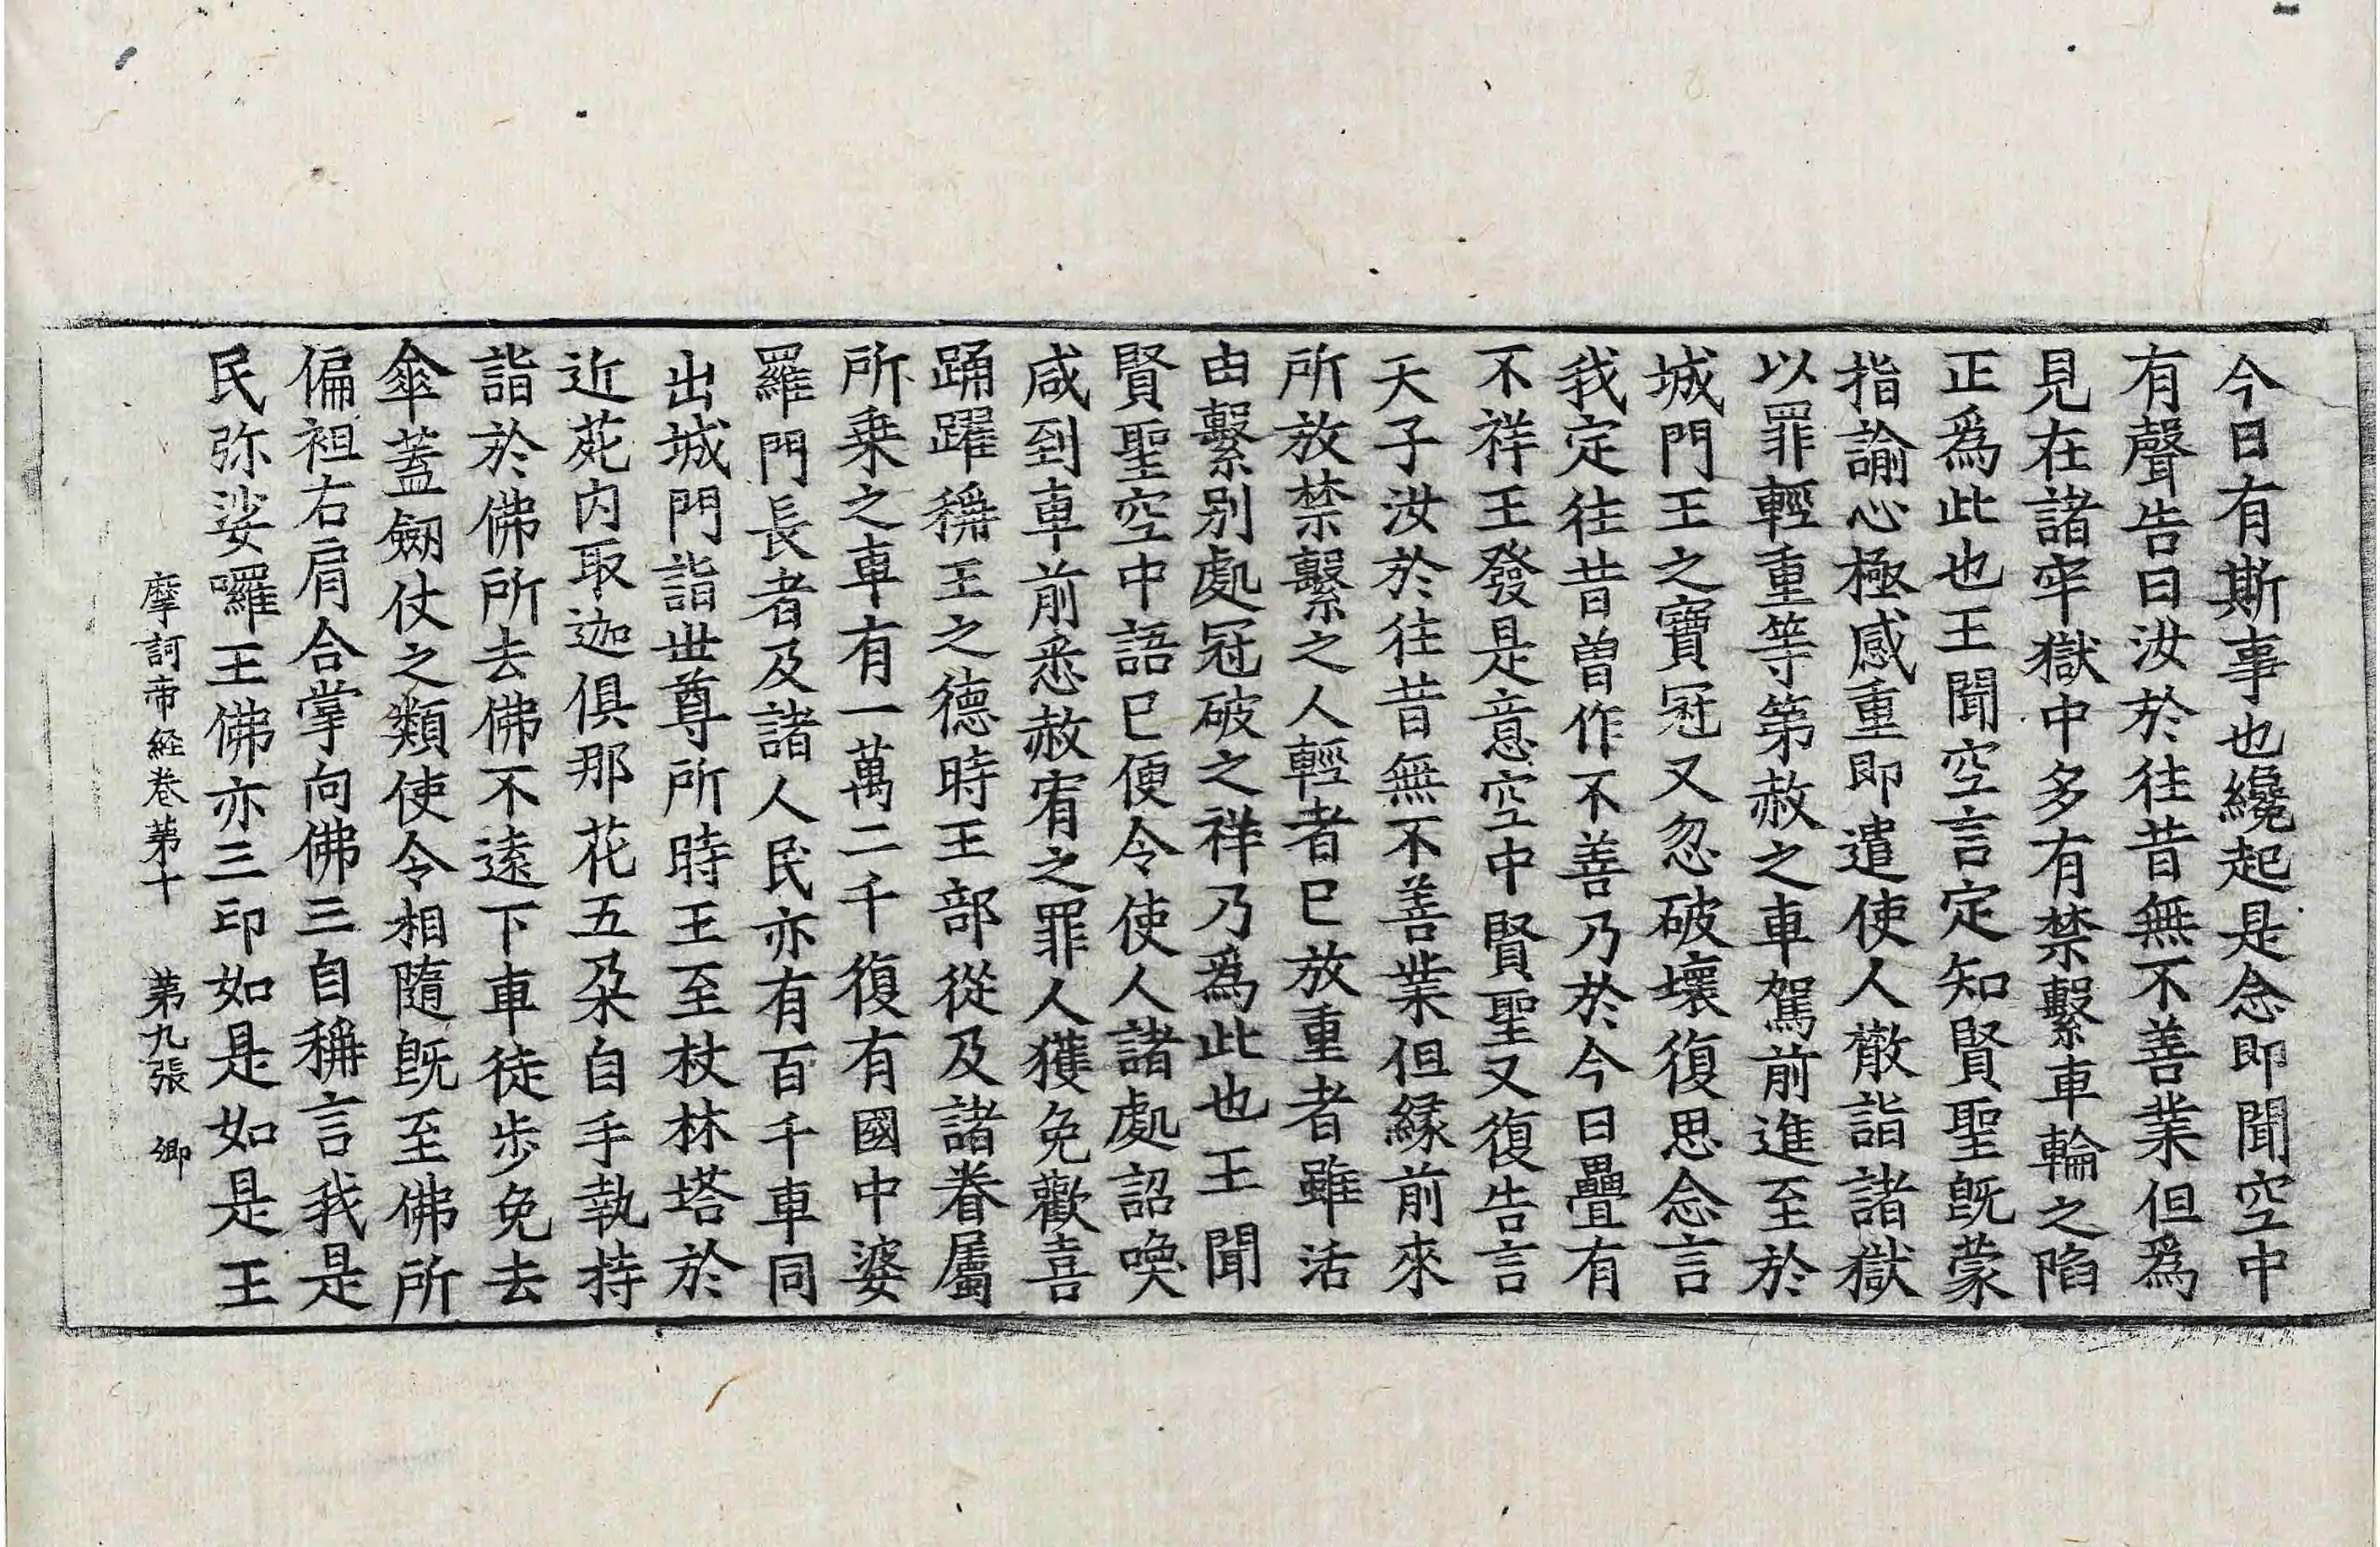 今日有斯事也纔起是念即聞空中
有聲告曰汝於往昔無不善業但爲
見在諸牢獄中多有禁繫車輪之陷
正爲此也王聞空言定知賢聖旣蒙
指諭心極感重即遣使人散詣諸獄
以罪輕重等第赦之車駕前進至於
城門王之寶冠又忽破壞復思念言
我定往昔曾作不善乃於今日疊有
不祥王發是意空中賢聖又復告言
天子汝於往昔無不善業但緣前來
所放禁繫之人輕者已放重者雖活
由繫别處冠破之祥乃爲此也王聞
賢聖空中語已便令使人諸處詔喚
咸到車前悉赦宥之罪人獲免歡喜
踊躍稱王之德時王部從及諸眷屬
所乗之車有一萬二千復有國中婆
羅門長者及諸人民亦有百千車同
出城門詣世尊所時王至杖林塔於
近苑内取迦俱那花五朶自手執持
詣於佛所去佛不遠下車徒步免去
傘蓋劔仗之類使令相隨旣至佛所
偏袒右肩合掌向佛三自稱言我是
民弥娑囉王佛亦三印如是如是王
摩訶帝経卷第十 第九張 卿